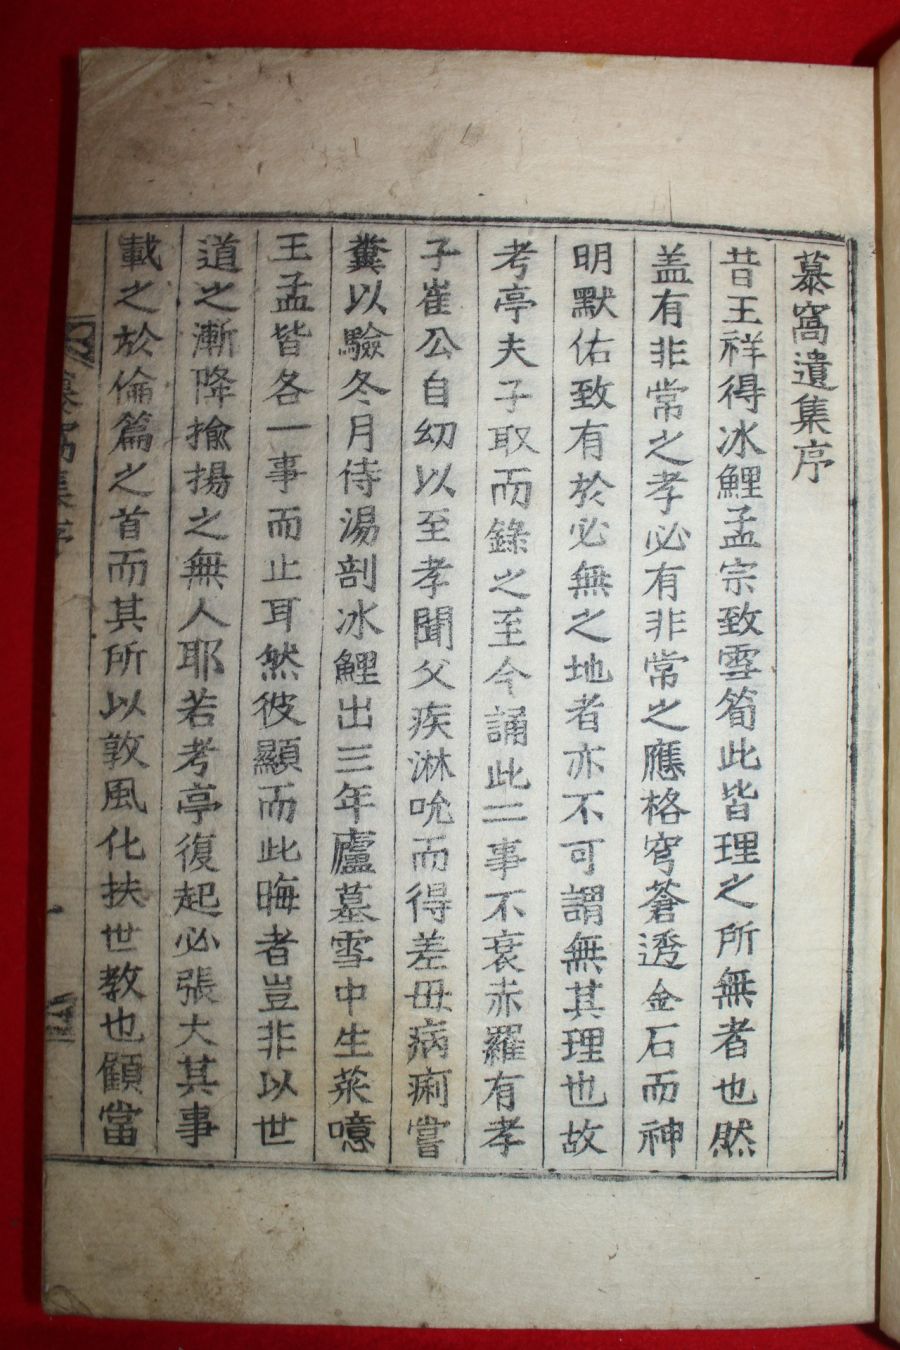 慕窩遺集序
昔王祥得冰鯉孟宗致雪筍此皆理之所無者也然
盖有非常之孝必有非常之應格穹蒼透金石而神
明默佑致有於必無之地者亦不可謂無其理也故
考亭夫子取而錄之至今誦此二事不衰赤羅有孝
子崔公自幼以至孝聞父疾淋吮而得差母病痢嘗
糞以驗冬月侍湯剖冰鯉出三年廬墓雪中生菜噫
王孟皆各一事而止耳然彼顯而此晦者豈非以世
道之漸降揄揚之無人耶若考亭復起必張大其事
載之於倫篇之首而其所以敦風化扶世教也顧當
慕窩集序
一